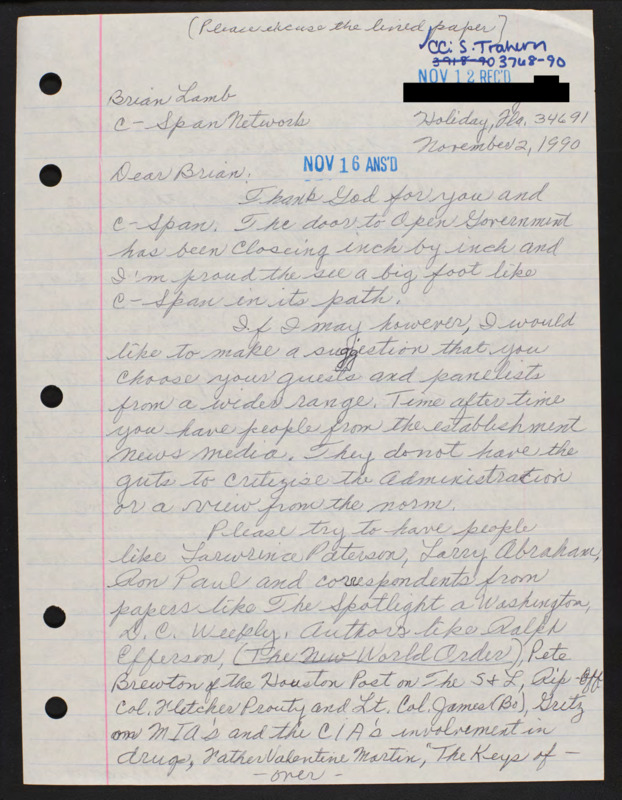 (Please excuse the lined paper)
CC: S. Trahern
3918-90 3768-90
NOV 12 REC'D
Brian Lamb
C-Span Network
Holiday, Fla. 34691
November 2, 1990
NOV 16 ANS'D
Dear Brian:
Thank God for you and
C-Span. The door to Open Government
has been Closeing inch by inch and
I'm proud the see a big foot like
C-Span in its path.
If I may however, I would
like to make a suggestion that you
choose your guests and panelists
from a wider range. Time after time
you have people from the establishment
news media. They do not have the
guts to critizise the administration
or a view from the norm.
Please try to have people
like Lawrence Paterson, Larry Abraham,
Ron Paul and correspondents from
papers like The Spotlight a Washington,
D.C. Weekly. Authors like Ralph
Epperson, (The New World Order), Pete
Brewton of the Houston Post on The S+L, Rip-Off
Col. Fletcher Prouty and Lt. Col. James (Bo), Gritz
on MIA's and the CIA's involvement in
drugs, Father Valentine Martin, "The Keys of -
- over -